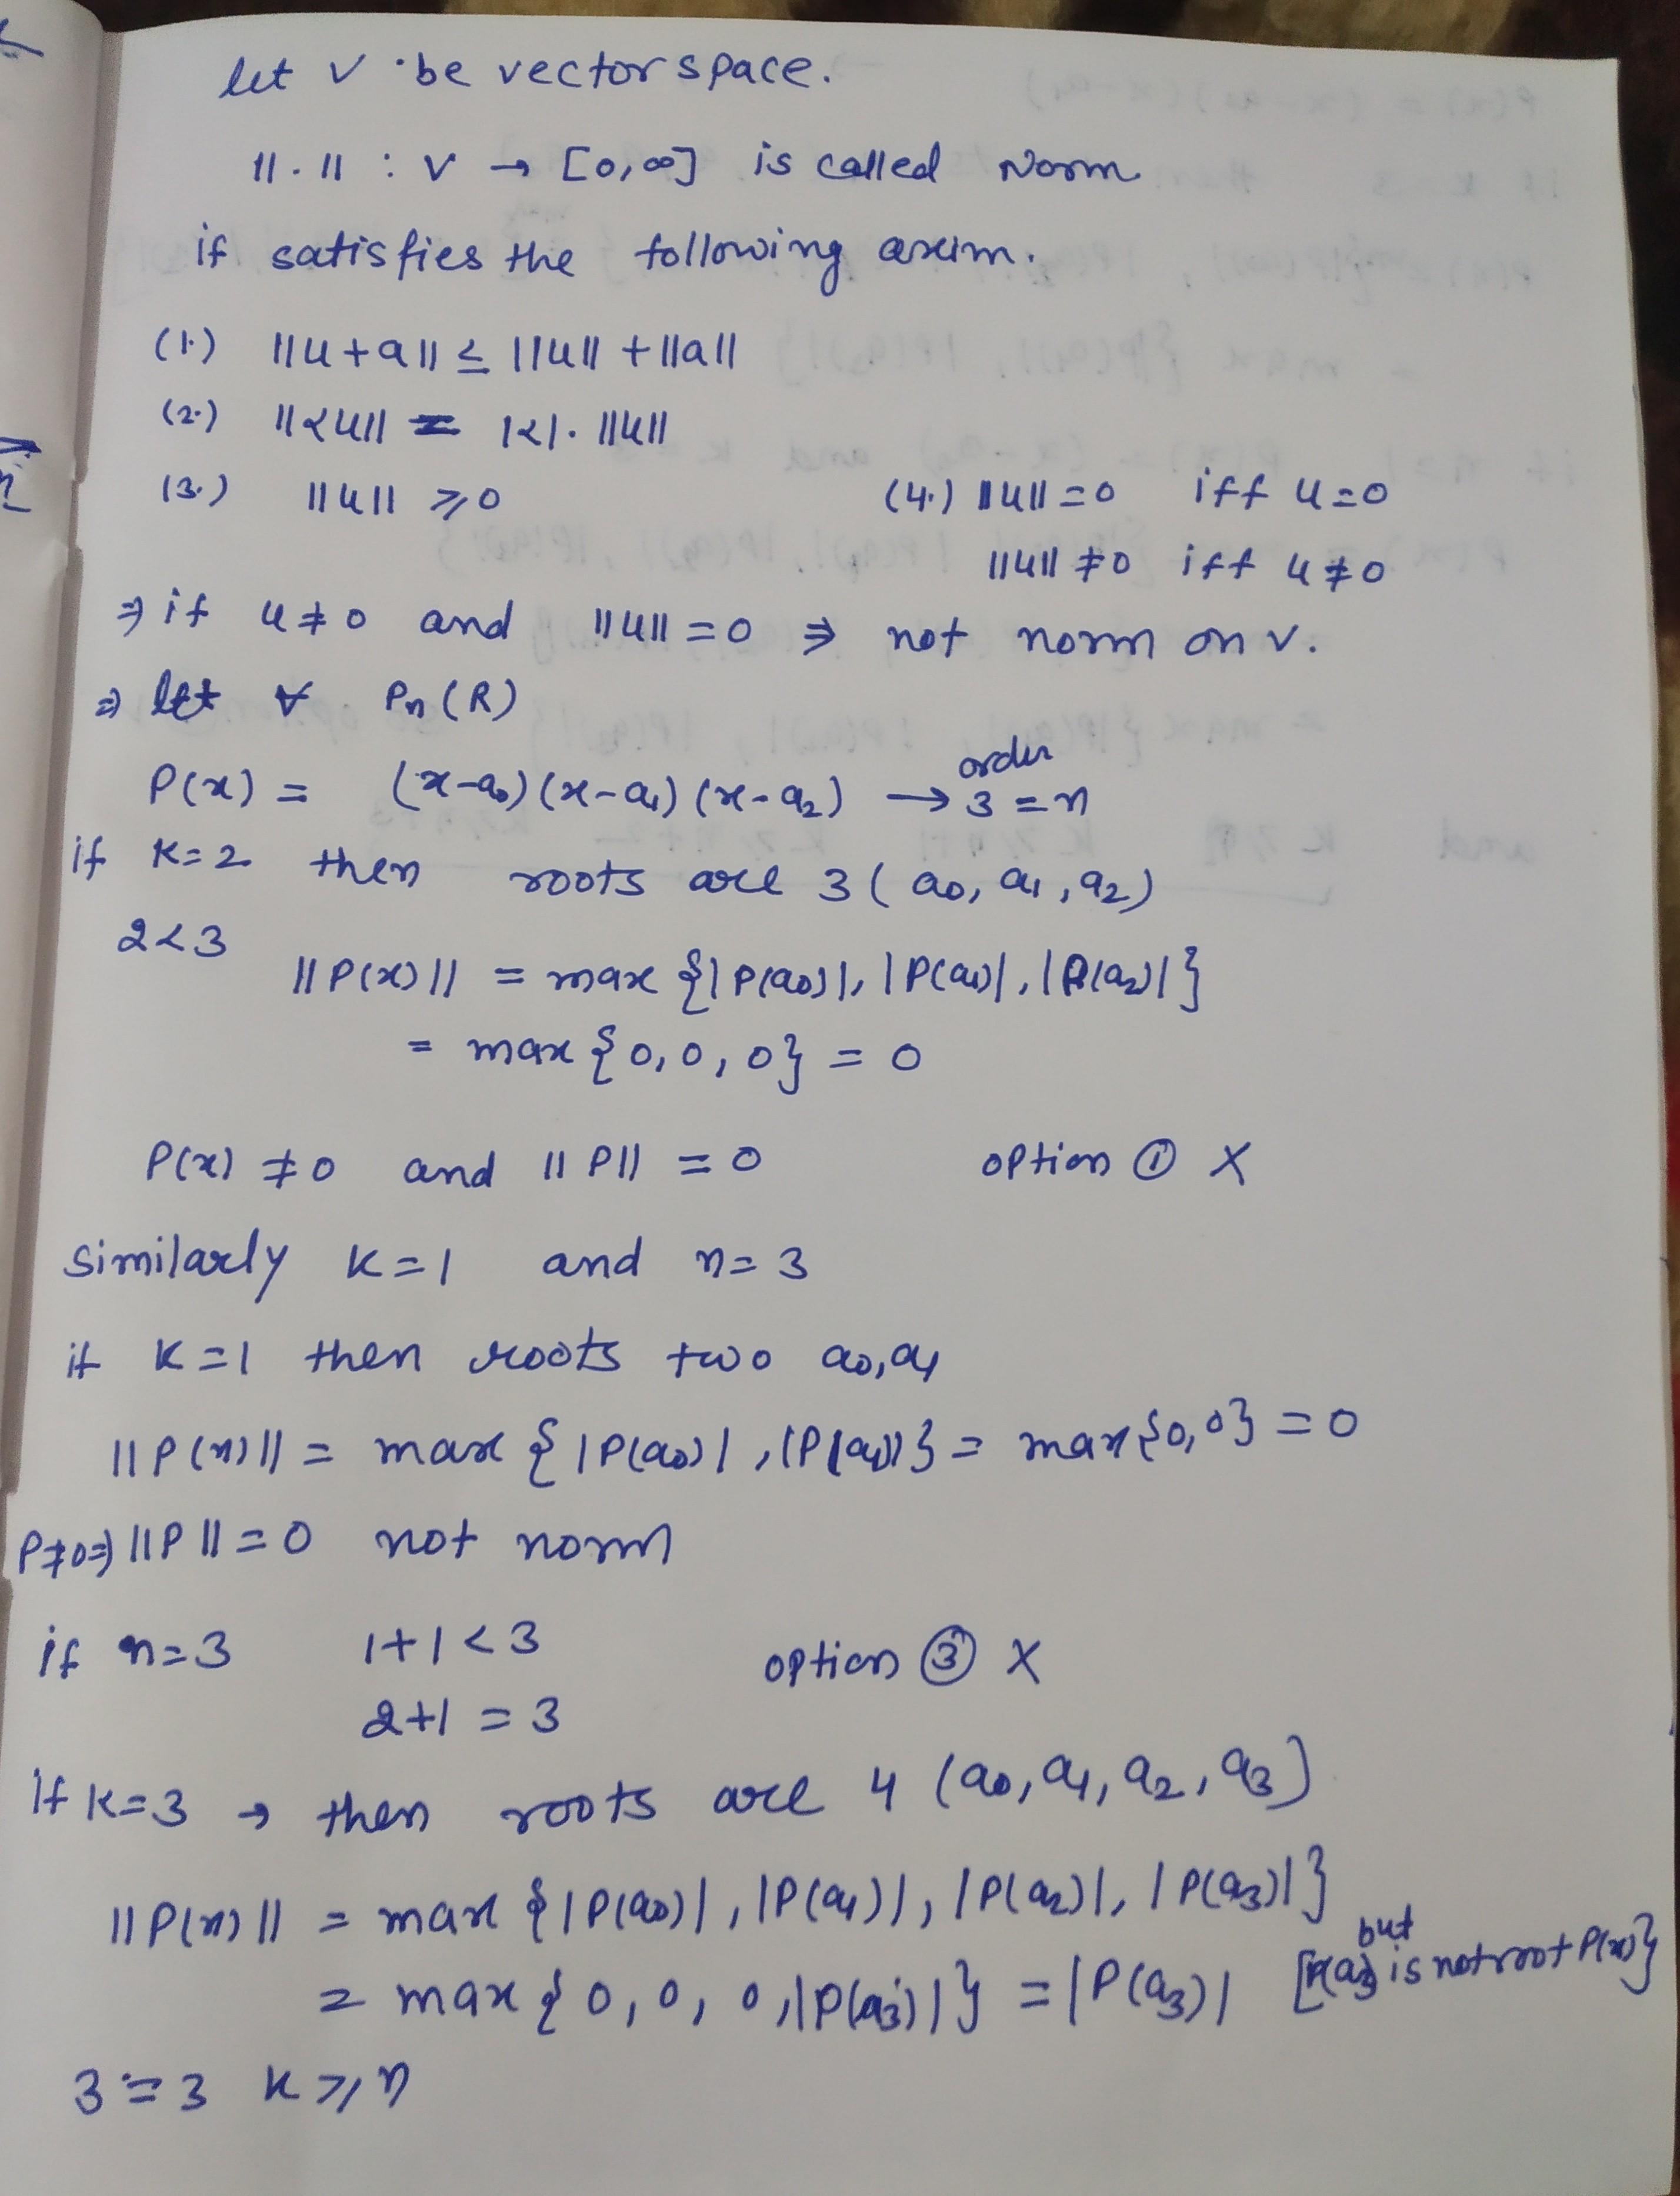 let V be vector space.
||.|| : V → [0,∞] is called Norm
if satisfies the following axim.
(1.) ||u+a|| ≤ ||u|| + ||a||
(2.) ||αu|| = |α|. ||u||
(3.) ||u|| ⩾ 0 (4.) ||u|| = 0 iff u=0
||u|| ≠ 0 iff u≠0
⇒ if u≠0 and ||u|| = 0 ⇒ not norm on V.
⇒ let ∀ Pn(R)
P(x) = (x-a0)(x-a1)(x-a2) → order 3 = n
if K=2 then roots are 3 (a0, a1, a2)
2<3
||P(x)|| = max {|P(a0)|, |P(a1)|, |P(a2)|}
= max {0, 0, 0} = 0
P(x) ≠ 0 and ||P|| = 0 option ① X
Similarly K=1 and n=3
if K=1 then roots two a0, a1
||P(x)|| = max {|P(a0)|, |P(a1)|} = max{0,0} = 0
P≠0⇒ ||P|| = 0 not norm
if n=3 1+1<3 option ③ X
2+1 = 3
If K=3 → then roots are 4 (a0, a1, a2, a3)
||P(x)|| = max {|P(a0)|, |P(a1)|, |P(a2)|, |P(a3)|}
= max {0, 0, 0, |P(a3)|} = |P(a3)| but is not root P(x)}
3=3 K⩾n